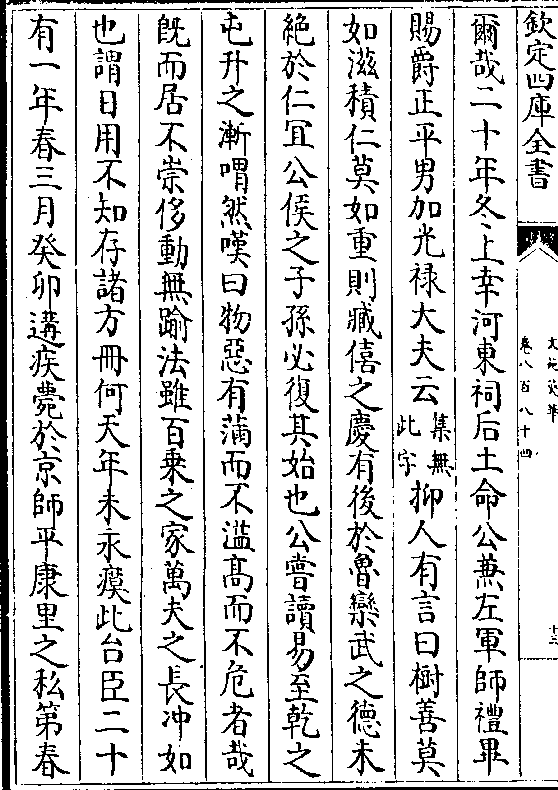 欽定四庫全書
文苑英華
卷八百八十四
十三
爾哉二十年冬上幸河東祠后土命公兼左軍師禮畢
賜爵正平男加光禄大夫云集無此字抑人有言曰樹善莫
如滋積仁莫如重則臧僖之慶有後於魯欒武之德未
絶於仁冝公侯之子孫必復其始也公嘗讀易至乾之
屯升之漸喟然嘆曰物惡有滿而不溢高而不危者哉
旣而居不崇侈動無踰法雖百乗之家萬夫之長冲如
也謂日用不知存諸方冊何天年未永瘼此台臣二十
有一年春三月癸卯遘疾薨於京師平康里之私第春